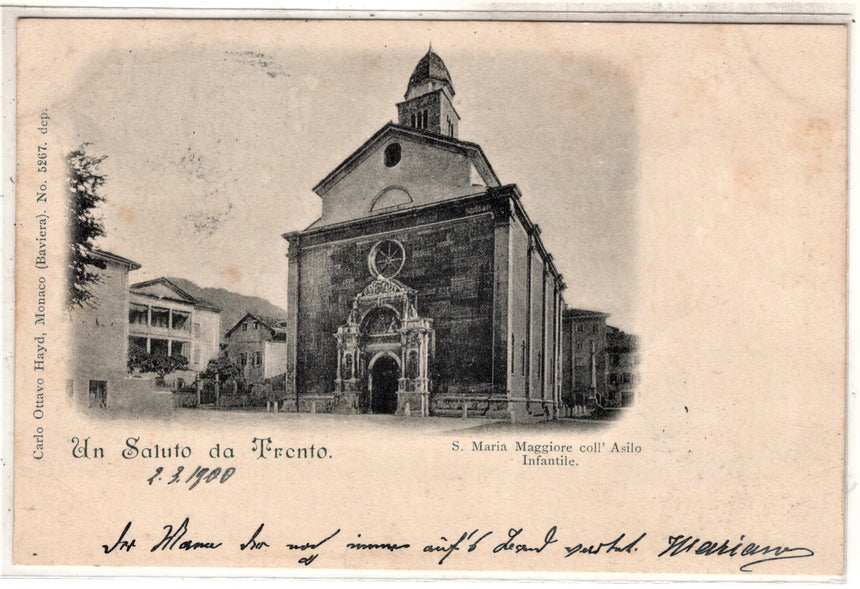 Carlo Ottavo Hayd, Monaco (Baviera). No. 5267. dep.
Un Saluto da Trento.
S. Maria Maggiore coll' Asilo
Infantile.
2.3.1900
Der Mann der noch immer auf's Land wartet. Mariano